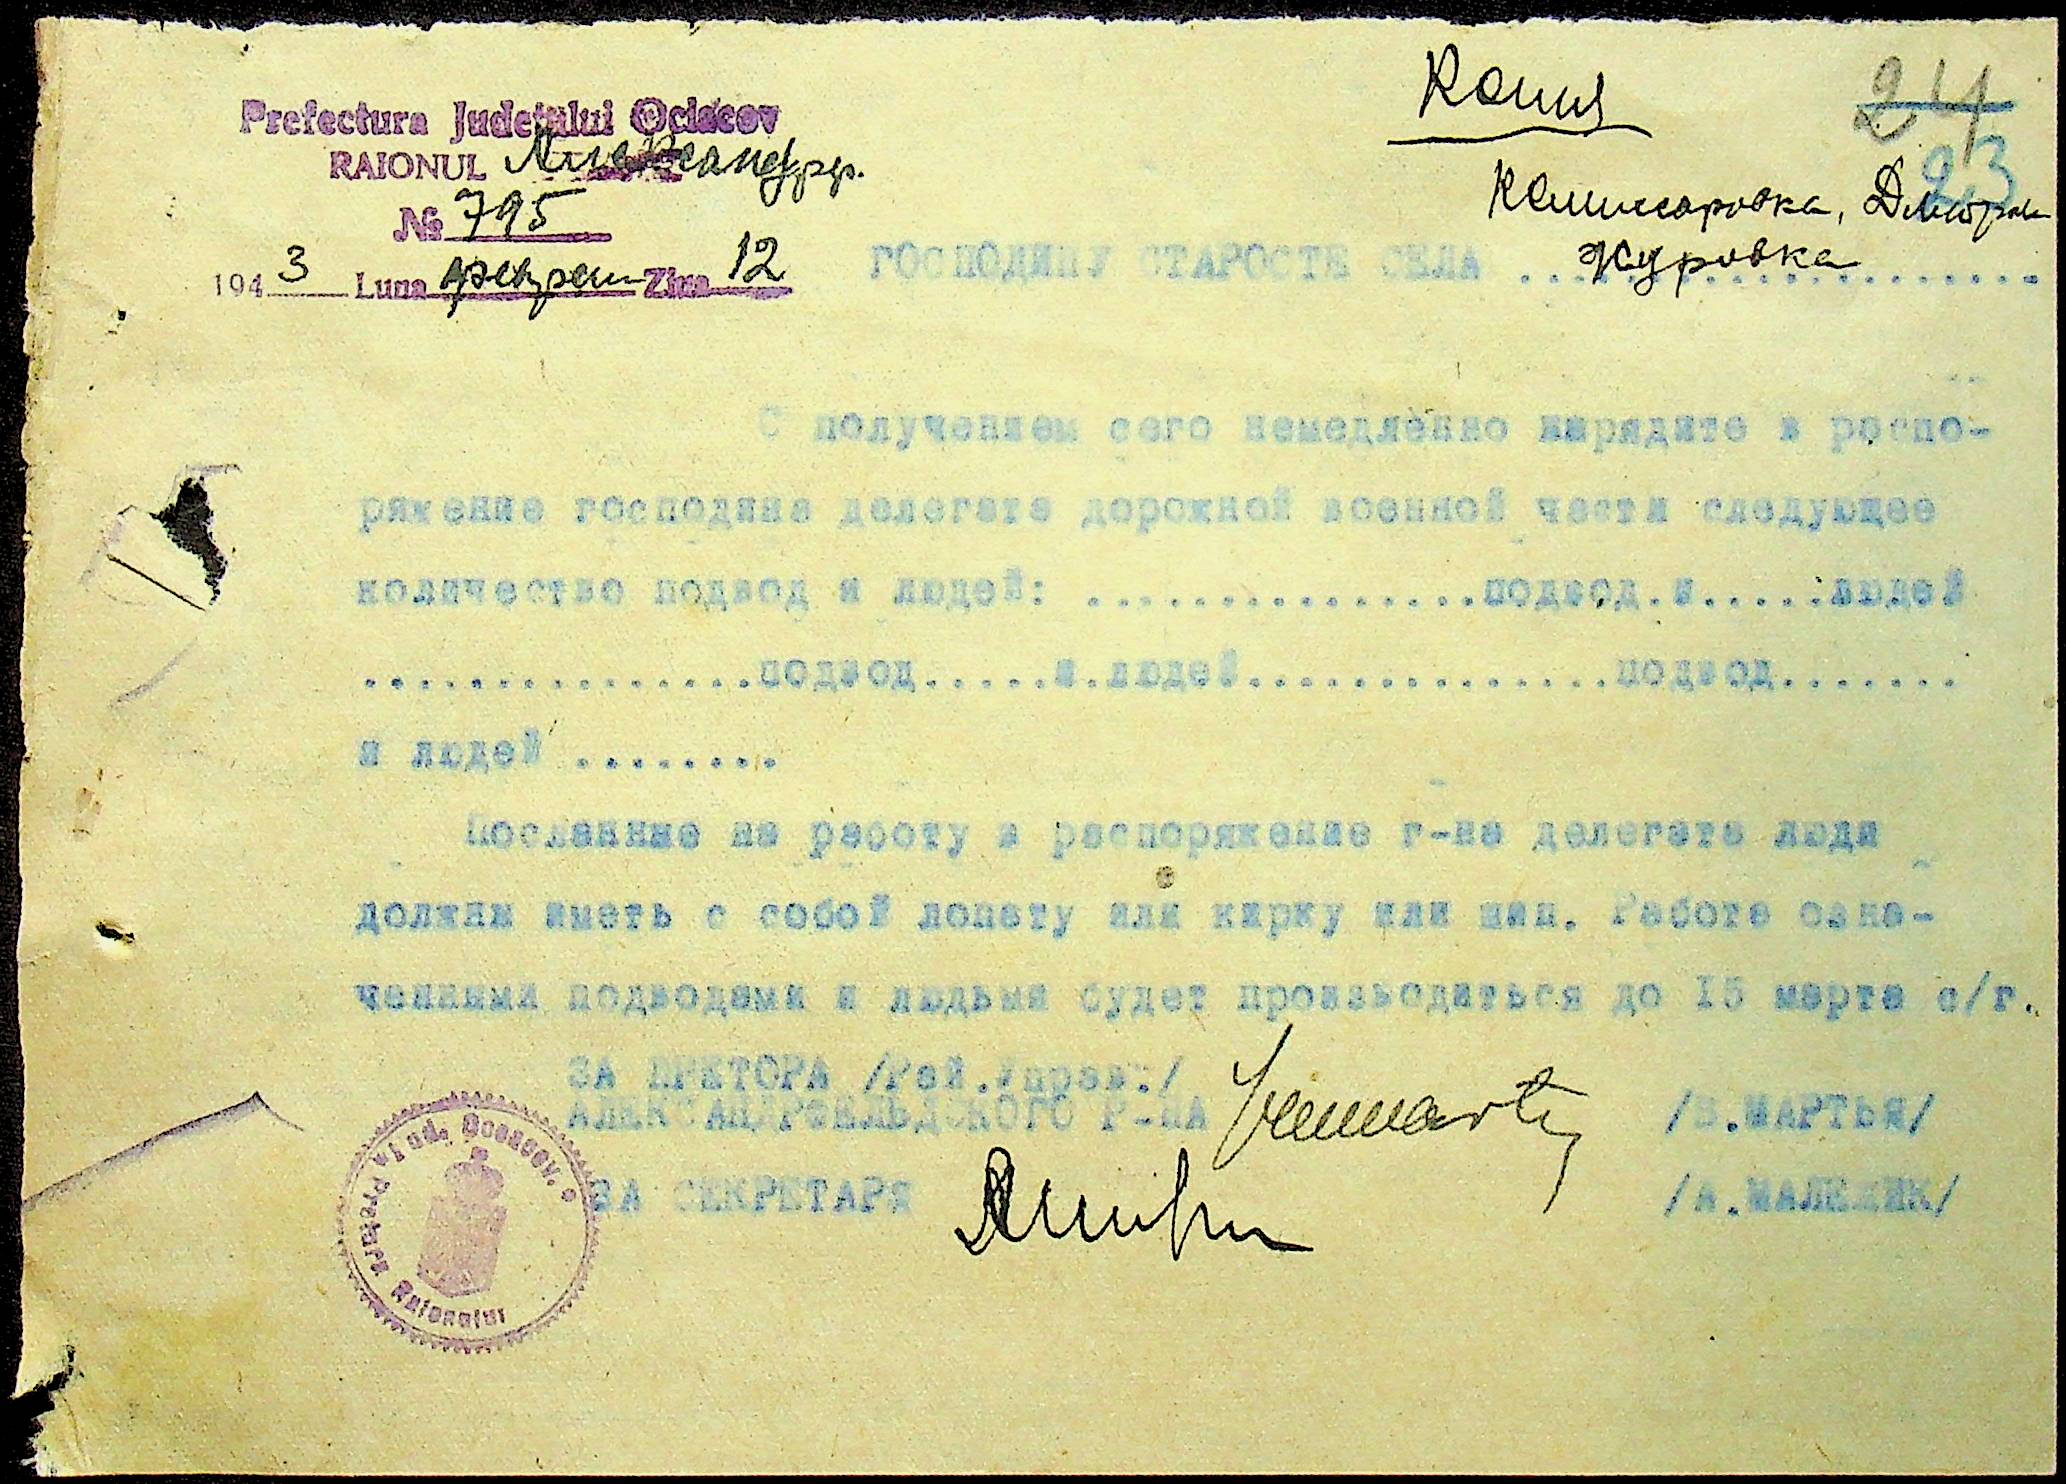 Копия
24
23
Prefectura Județului Ociacov
RAIONUL Александрф.
№ 795
194 3 Luna февраля Ziua 12
Комиссаровка, Дмитров
Журовка
ГОСПОДИНУ СТАРОСТЕ СЕЛА ....................
С получением сего немедленно нарядите в распо-
ряжение господина делегата дорожной военной части следующее
количество подвод и людей: ...............подвод.и.....людей
...............подвод.....и.людей..............подвод.......
и людей ........
Посланные на работу в распоряжение г-на делегата люди
должны иметь с собой лопату или кирку или шап. Работа озна-
ченными подводами и людьми будет производиться до 15 марта с/г.
ЗА ПРЕТОРА /Рай.Управ./
АЛЕКСАНДРФЕЛЬДСКОГО Р-НА /В.МАРТЬЯ/
ЗА СЕКРЕТАРЯ /А.МАЛЕЖИК/
Pretura Raionului